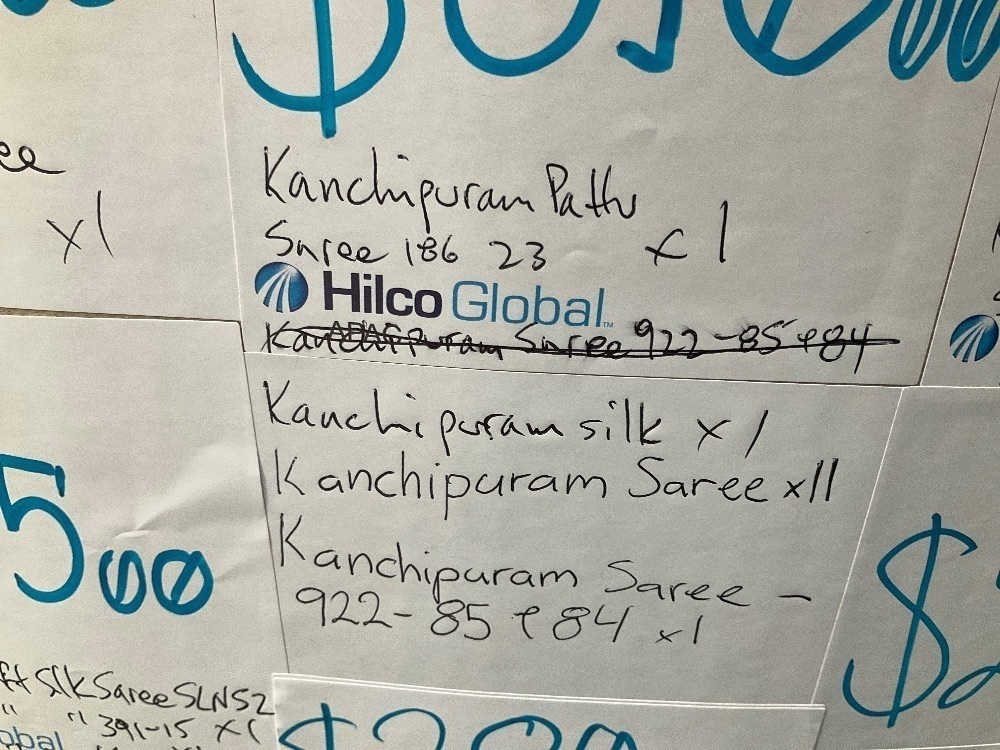 Kanchipuram Pattu
Saree 186 23 x1
Hilco Global™
Kanchipuram Saree 922-85 & 84
Kanchipuram silk x 1
Kanchipuram Saree x11
Kanchipuram Saree -
922-85 & 84 x1
x1
500
ft Silk Saree SLNS2
" " 391-15 x1
obal
$200
$